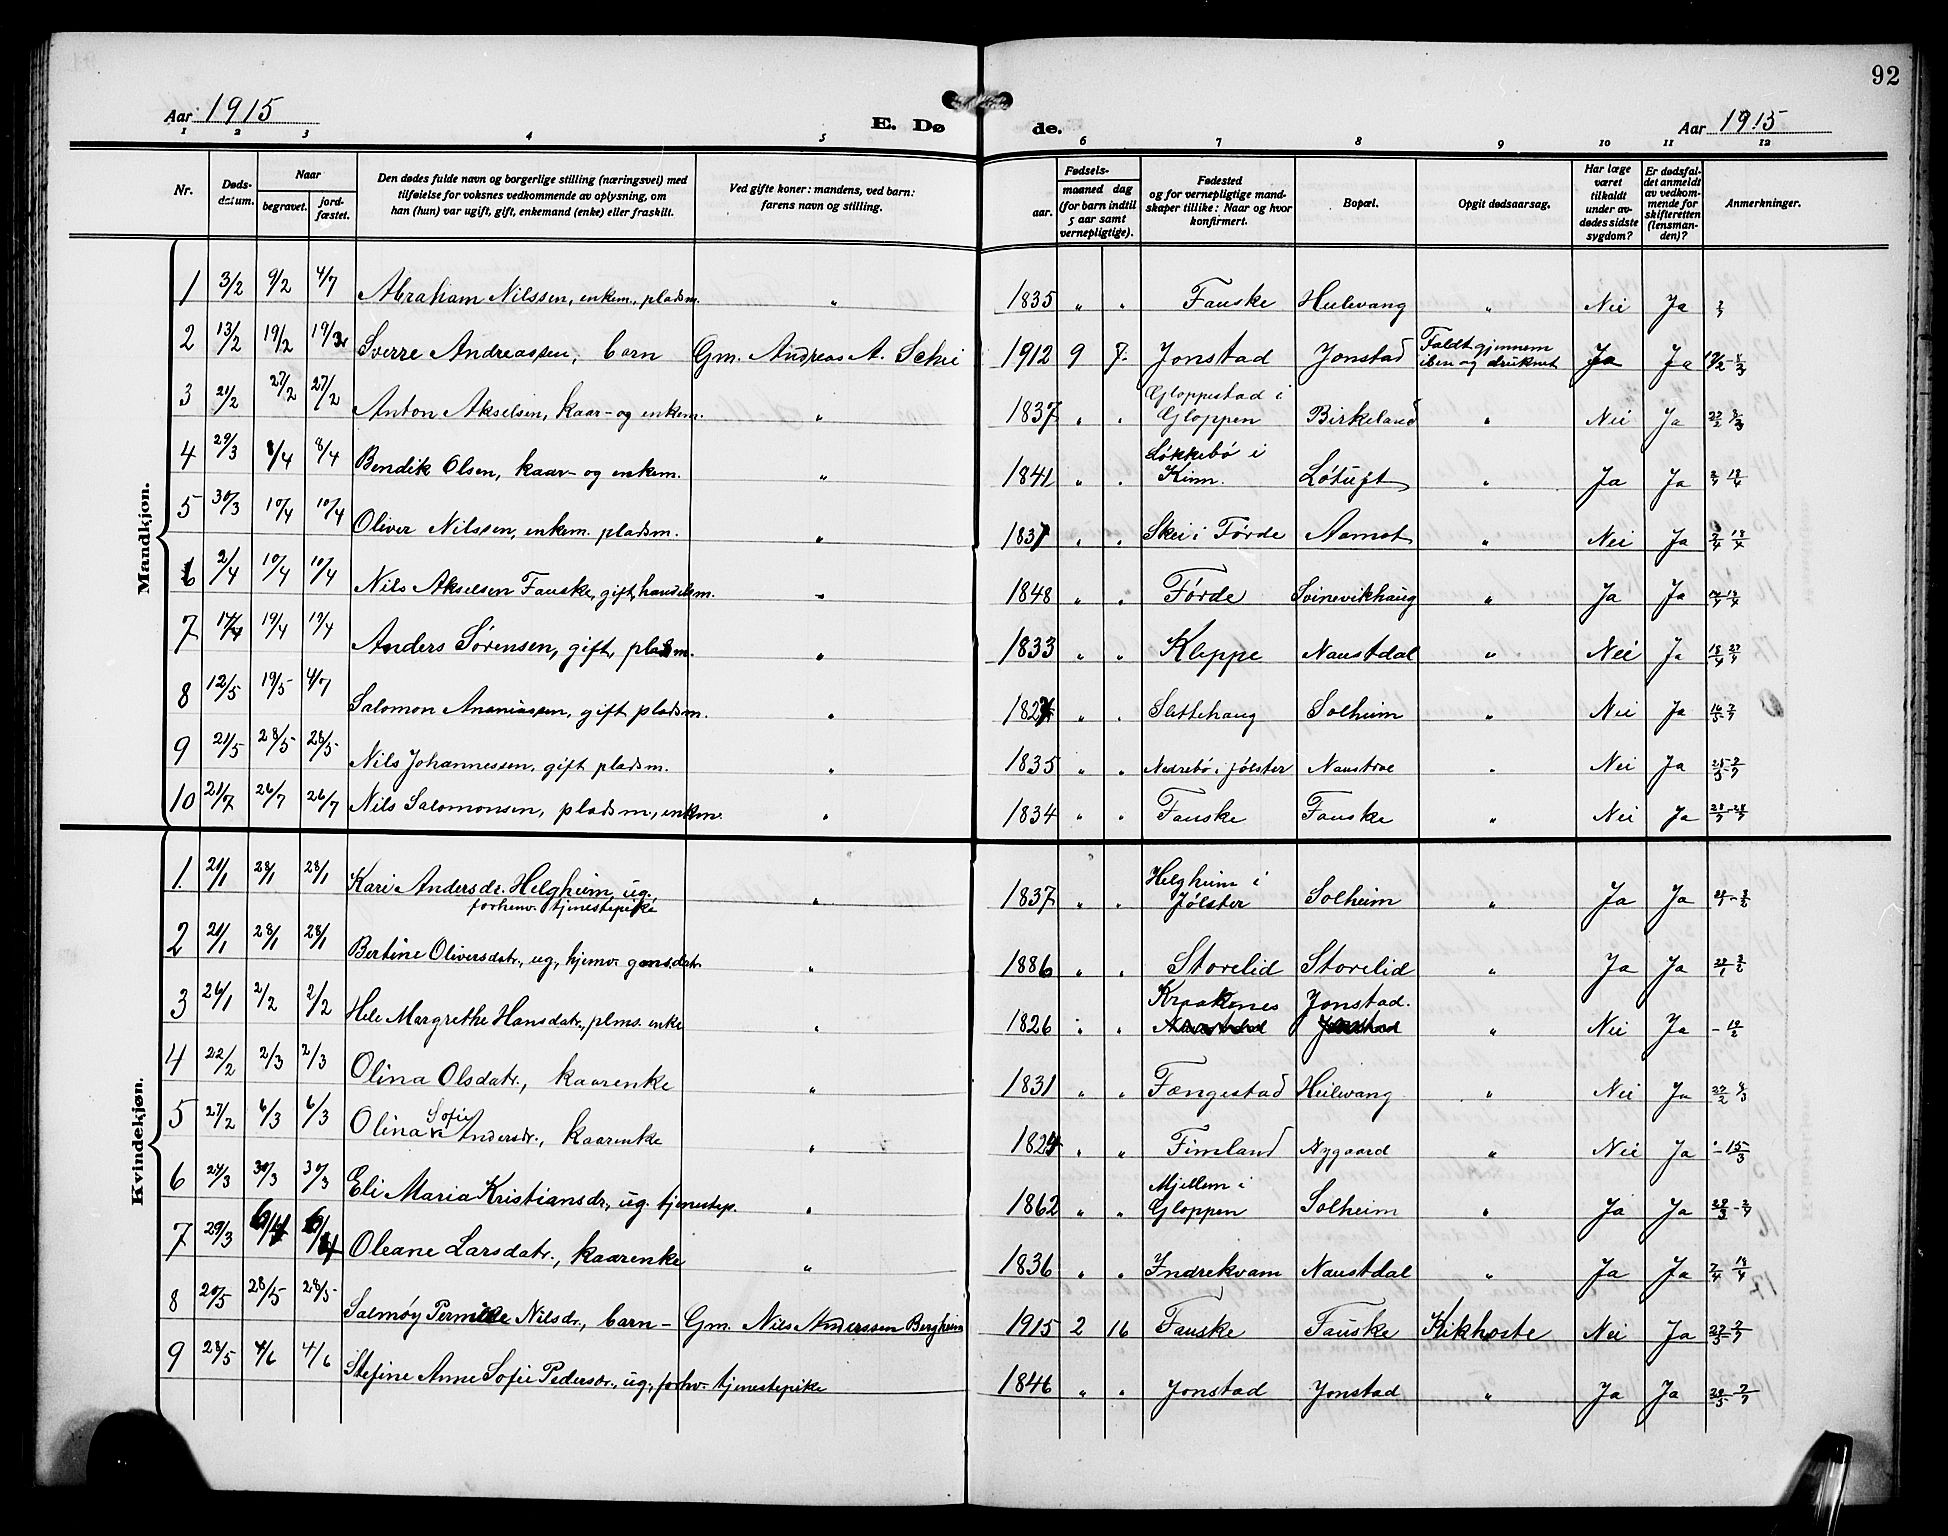 92
Aar 1915 E. Dø de. Aar 1915
1 2 3 4 5 6 7 8 9 10 11 12
Nr. Døds-datum. Naar begravet. jord-fæstet. Den dødes fulde navn og borgerlige stilling (næringsvei) med tilføielse for voksnes vedkommende av oplysning, om han (hun) var ugift, gift, enkemand (enke) eller fraskilt. Ved gifte koner: mandens, ved barn: farens navn og stilling. aar. Fødsels- maaned dag (for barn indtil 5 aar samt vernepligtige). Fødested og for vernepligtige mand-skaper tillike: Naar og hvor konfirmert. Bopæl. Opgit dødsaarsag. Har læge været tilkaldt under av-dødes sidste sygdom? Er dødsfal-det anmeldt av vedkom-mende for skifteretten (lensman-den)? Anmerkninger.
Mandkjøn.
1 3/2 9/2 4/7 Abraham Nilssen, enkem., pladsm. " 1835 " " Fauske Heilevang " Nei Ja
2 13/2 19/2 Sverre Andreassen, barn Gm. Andreas A. Schei 1912 9 7. Jonstad Jonstad Faldt gjennem isen og druknet Ja Ja
3 21/2 27/2 27/2 Anton Akselsen, kaar- og enkem. " 1837 " " Gloppestad i Gloppen Birkeland " Nei Ja
4 29/3 8/4 8/4 Bendik Olsen, kaar- og enkem. " 1841 " " Løkkebø i Kinn. Løtuft " Ja Ja
5 30/3 10/4 10/4 Oliver Nilssen, enkem. pladsm. " 1831 " " Skei i Førde Aamot " Nei Ja
6 2/4 10/4 10/4 Nils Akselsen Fauske, gift, handelsm. " 1848 " " Førde Svinevikhaug " Ja Ja
7 14/4 19/4 19/4 Anders Sørensen, gift, pladsm. " 1833 " " Kleppe Naustdal " Nei Ja
8 12/5 19/5 4/7 Salomon Ananiassen, gift pladsm. " " " Slettehaug Solheim " Nei Ja
9 21/5 28/5 28/5 Nils Johannessen, gift pladsm. " 1835 " " Nedrebø i Jølster Naustvoe " Nei Ja
10 21/7 26/7 26/7 Nils Salomonsen, pladsm., enkm. " 1834 " " Fauske Fauske " Nei Ja
Kvindekjøn.
1. 21/1 28/1 28/1 Kari Andersdr. Helgheim, ug. forhenv. tjenestepike " 1837 " " Helgheim i Jølster Solheim " Ja Ja
2 21/1 28/1 28/1 Bertine Oliversdatr., ug., hjemv. gmsdatr. " 1886 " " Storelid Storelid " Ja Ja
3 26/1 2/2 2/2 Hele Margrethe Hansdatr., plms. enke " 1826 " " Kraakenes Jonstad. " Nei Ja
4 22/2 2/3 2/3 Olina Olsdatr., kaarenke " 1831 " " Fængestad Heilevang " Nei Ja
5 27/2 6/3 6/3 Olina Sofie Andersdr., kaarenke " 1824 " " Fimland Nygaard " Nei Ja
6 24/3 30/3 30/3 Eli Maria Kristiansdr., ug. tjenestep. " 1862 " " Mjellem i Gloppen Solheim " Ja Ja
7 29/3 6/4 6/4 Oleane Larsdatr., kaarenke " 1836 " " Indrekvam Naustdal " Ja Ja
8 20/5 28/5 28/5 Salmøy Pernille Nilsdr., barn – Gm. Nils Anderssen Bergheim 1915 2 16 Fauske Fauske Kikhoste Nei Ja
9 28/5 4/6 4/6 Stefine Anne Sofie Pedersdr., ug., forhv. tjenestepike 1846 " " Jonstad Jonstad " Ja Ja